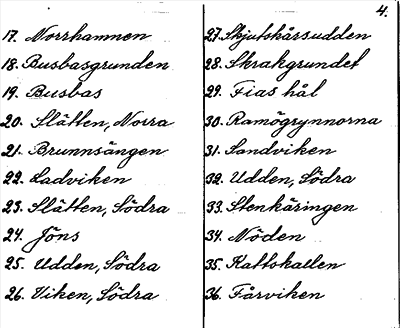 4.
17. Norrhamnen
18. Busbasgrunden
19. Busbas
20. Slätten, Norra
21. Brunnsängen
22. Ladviken
23. Slätten, Södra
24. Jöns
25. Udden, Södra
26. Viken, Södra
27. Skjutskärsudden
28. Skrakgrundet
29. Fias hål
30. Ramögrynnorna
31. Sandviken
32. Udden, Södra
33. Stenkäringen
34. Nöden
35. Kattskallen
36. Fårviken